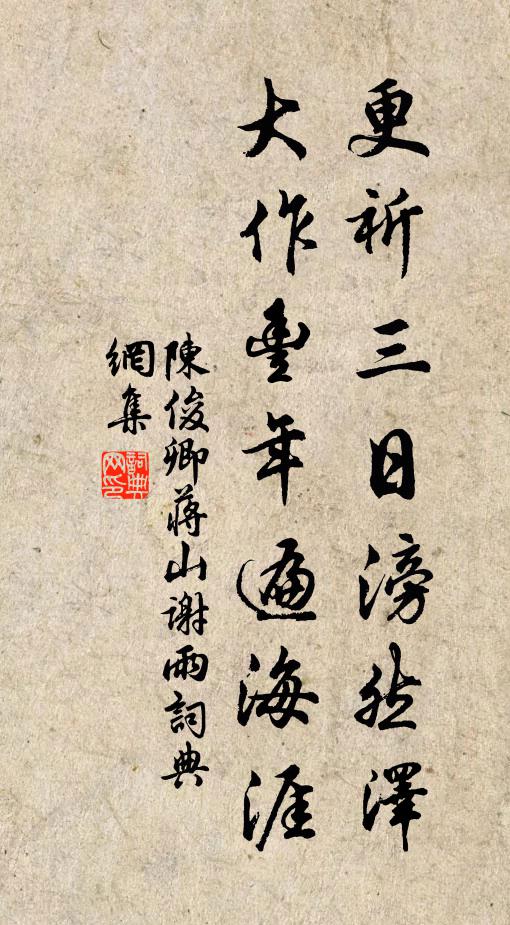 更祈三日滂然澤
大作豊年遍海涯
陳俊卿蔣山謝雨詞典
網集
詞典
网印